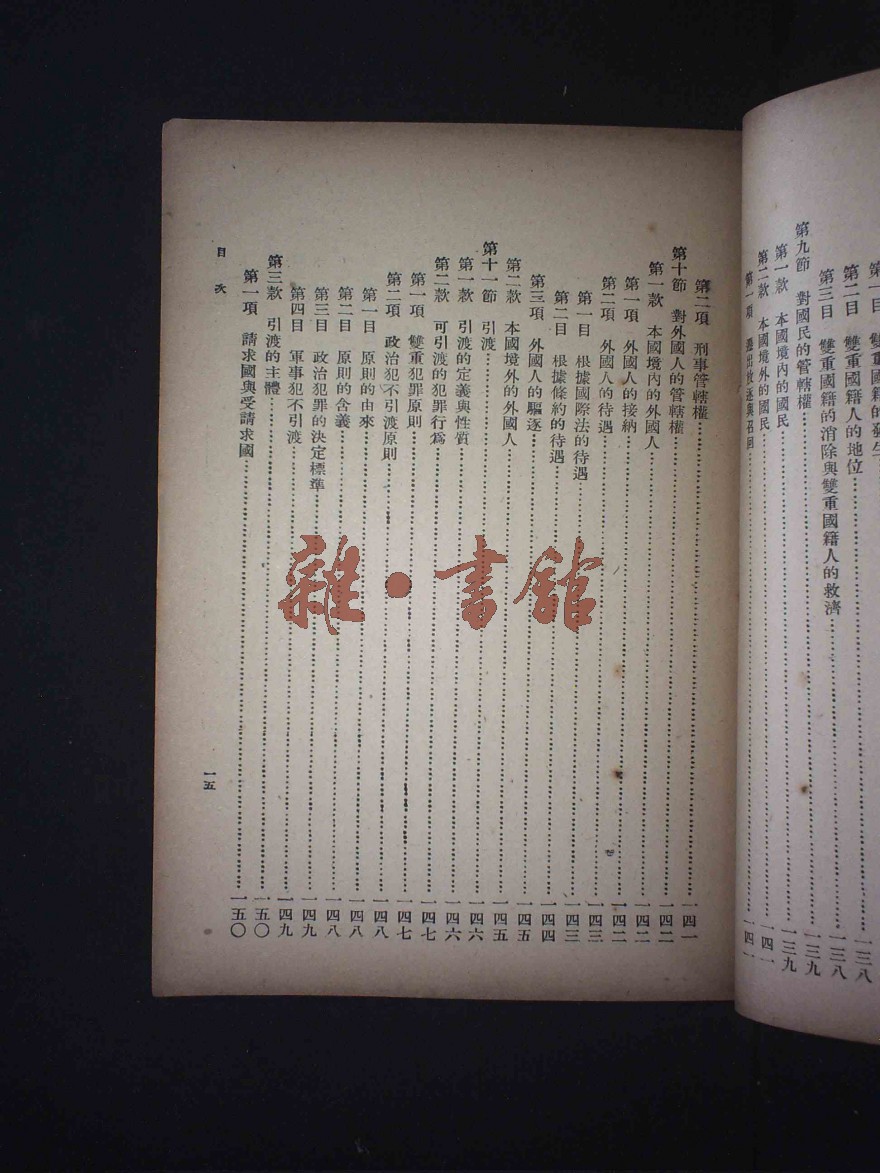 第一目 雙重國籍的發生
第二目 雙重國籍人的地位……一三八
第三目 雙重國籍的消除與雙重國籍人的救濟……一三八
第九節 對國民的管轄權……一三九
第一款 本國境內的國民……一三九
第二款 本國境外的國民……一四一
第一項 放逐與召回……一四一
第二項 刑事管轄權……一四一
第十節 對外國人的管轄權……一四二
第一款 本國境內的外國人……一四二
第一項 外國人的接納……一四二
第二項 外國人的待遇……一四三
第一目 根據國際法的待遇……一四三
第二目 根據條約的待遇……一四四
第三項 外國人的驅逐……一四五
第二款 本國境外的外國人……一四五
第十一節 引渡……一四六
第一款 引渡的定義與性質……一四六
第二款 可引渡的犯罪行爲……一四七
第一項 雙重犯罪原則……一四七
第二項 政治犯不引渡原則……一四八
第一目 原則的由來……一四八
第二目 原則的含義……一四八
第三目 政治犯罪的決定標準……一四九
第四目 軍事犯不引渡……一四九
第三款 引渡的主體……一五〇
第一項 請求國與受請求國……一五〇
目次
一五
雜·書館